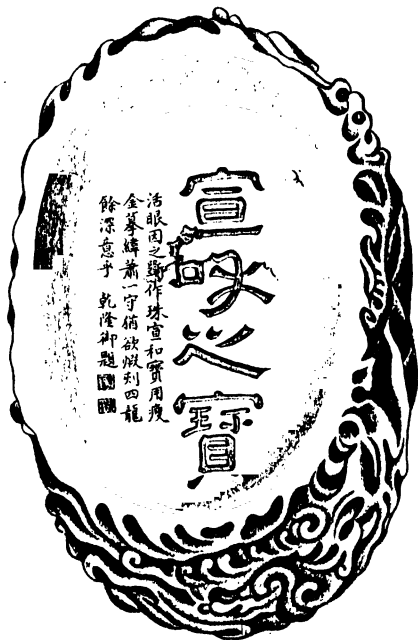 宣和之寶
活眼因之號作珠宣和寶用瘦
金摹緯蕭一守猶欲煅四龍
餘深意乎 乾隆御題